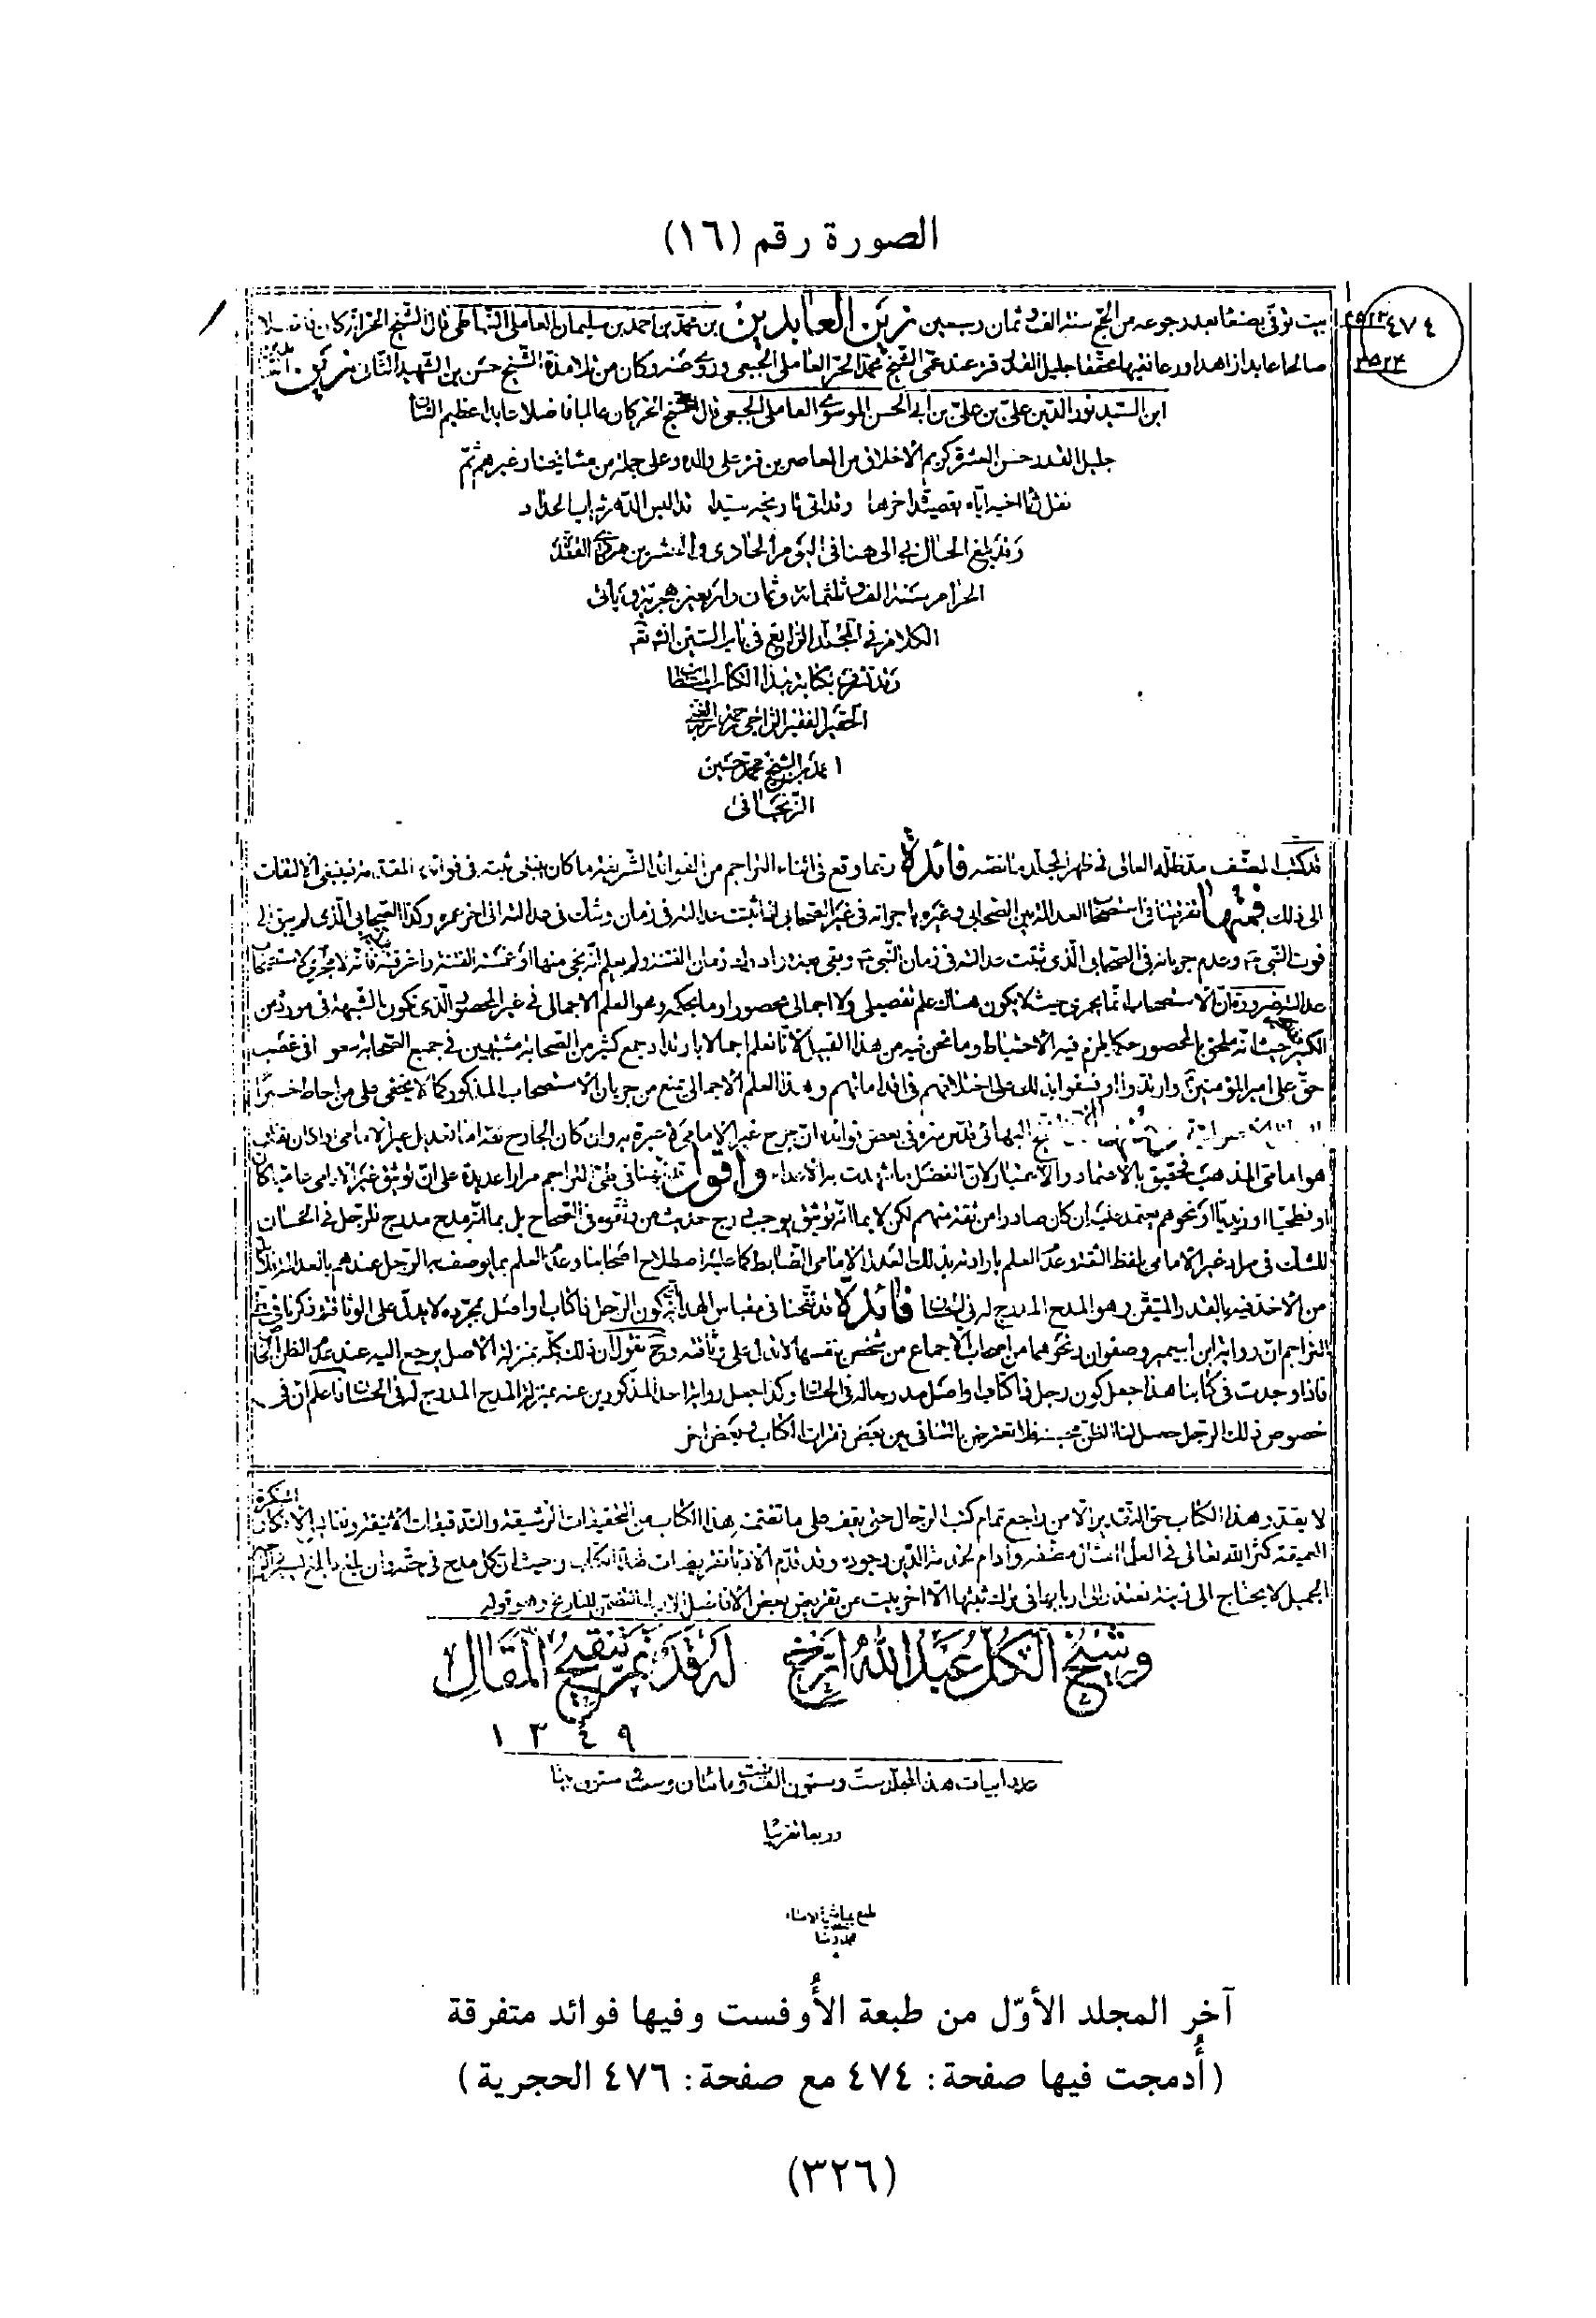 الصورة رقم (١٦)
٤٧٤
بيت توفّى بصنعا بعد رجوعه من الحج سنة الف وثمان وسبعين زين العابدين بن محمد بن احمد بن سليمان العاملى النباطى قال الشيخ الحر انّه كان فاضلا
صالحا عابدا زاهدا ورعا فقيها محققا جليل القدر قرء عند عمى الشيخ محمد الحر العاملى الجبعى وروى عنه وكان من تلامذة الشيخ حسن بن الشهيد الثانى زين
ابن السيد نور الدين على بن على بن ابى الحسن الموسوى العاملى الجبعى قال الشيخ الحر كان عالما فاضلا عابدا عظيم الشان
جليل القدر حسن العشرة كريم الاخلاق من المعاصرين قرء على والده وعلى جملة من مشايخنا وغيرهم ثم
نقل رثا اخيه اياه بقصيدة اخرها
وقد بلغ الحال بى الى هنا فى اليوم الحادى والعشرين من ذى القعدة
الحرام سنة الف وثلثمائة وثمان واربعين هجرية ويأتى
الكلام فى المجلد الرابع فى باب السين انش تع
وقد تشرف بكتابة هذا الكتاب المستطاب
الحقير الفقير الراجى
ابن الشيخ محمد حسين
الزنجانى
قد كتب المصنف مد ظله العالى فى ظهر المجلد ما نصه فائدة ربما وقع فى اثناء التراجم من الفوائد الشريفة ما كان ينبغى ثبته فى فوائد المقدمة فينبغى الالتفات
الى ذلك فمنها تفرقتنا فى استصحاب العدالة بين الصحابى وغيره باجرائه فى غير الصحابى اذا ثبتت عدالته فى زمان وشك فى عدالته الى اخر عمره وكذا الصحابى الذى لم يبق الى
فوت النبى ص وعدم جريانه فى الصحابى الذى ثبتت عدالته فى زمان النبى ص وبقى بعده وادرك زمان الفتنة ولم يعلم انه نجى منها او غمسته الفتنة واغرقته فانه لا مجرى لاستصحاب
عدالته ضرورة ان الاستصحاب انما يجرى حيث لا يكون هناك علم تفصيلى ولا اجمالى محصور او ما بحكمه وهو العلم الاجمالى فى غير المحصور الذى تكون الشبهة فى موردين
الكثير حيث انه ملحق بالمحصور حكما يلزم فيه الاحتياط وما نحن فيه من هذا القبيل لانا نعلم اجمالا بارتداد جمع كثير من الصحابة مشتبهين فى جميع الصحابة سعوا فى غصب
حق على امير المؤمنين ع وارتدوا او فسقوا بذلك على اختلافهم فى اقداماتهم وهذا العلم الاجمالى يمنع من جريان الاستصحاب المذكور كما لا يخفى على من احاط خبرا
البهائى قدس سره فى بعض فوائده ان جرح غير الامامى لا عبرة به وان كان الجارح ثقة اما تعديل غير الامامى اذا كان ثقة لمن
هو امامى المذهب فحقيق بالاعتماد والاعتبار لان الفضل ما شهدت به الاعداء واقول قد نبهنا فى طى التراجم مرارا عديدة على ان توثيق غير الامامى عاميا كان
او فطحيا او زيديا او نحوهم يعتمد عليه ان كان صادرا من ثقة منهم لكن لا بما انه توثيق يوجب درج حديث من وثقوه فى الصحاح بل بما انه مدح مدرج للرجل فى الحسان
للشك فى مراد غير الامامى بلفظ الثقة وعدم العلم بارادته بذلك العدل الامامى الضابط كما عليه اصطلاح اصحابنا وعدم العلم بما يوصف به الرجل عندهم بالعدالة فلا
من الاخذ فيه بالقدر المتيقن وهو المدح المدرج له فى الحسان فائدة قد نقحنا فى مقباس الهداية ان كون الرجل ذا كتاب او اصل بمجرده لا يدل على الوثاقة وذكرنا فى
التراجم ان رواية ابن ابيعمير وصفوان ونحوهما من اصحاب الاجماع من شخص بنفسها لا تدل على وثاقته وح نقول ان ذلك كله بمنزلة الاصل يرجع اليه عند عدم الظن
فاذا وجدت فى كتابنا هذا جعل كون رجل ذا كتاب او اصل مدرجا له فى الحسان وكذا جعل رواية احد المذكورين عنه بمنزلة المدح المدرج له فى الحسان فاعلم ان فى
خصوص ذلك الرجل حصل لنا الظن بالتنافى بين بعض فقرات الكتاب وبعض اخر
لا يقدر هذا الكتاب حق التقدير الا من راجع تمام كتب الرجال حتى يقف على ما تضمنه هذا الكتاب من التحقيقات الرشيقة والتدقيقات الانيقة
العميقة كثر الله تعالى فى العلماء امثال مصنفه وادام لخدمة الدين وجوده وقد قدم الادباء تقريضات لهذا الكتاب وحيث ان كل مدح فى حقه وان بلغ ما بلغ
الجميل لا يحتاج الى زينة نعتذر الى اربابها فى ترك ثبتها الا اخر بيت من تقريض بعض الافاضل المتضمن للتاريخ وهو قوله
وشيخ الكل عبد الله ارخ له قد تم تنقيح المقال
١٣٤٩
عدد ابيات هذا المجلد ست وستون الف بيت ومائتان وست وستون بيتا
وربعا تقريبا
آخر المجلد الأوّل من طبعة الأُوفست وفيها فوائد متفرقة
(أُدمجت فيها صفحة: ٤٧٤ مع صفحة: ٤٧٦ الحجرية)
(٣٢٦)